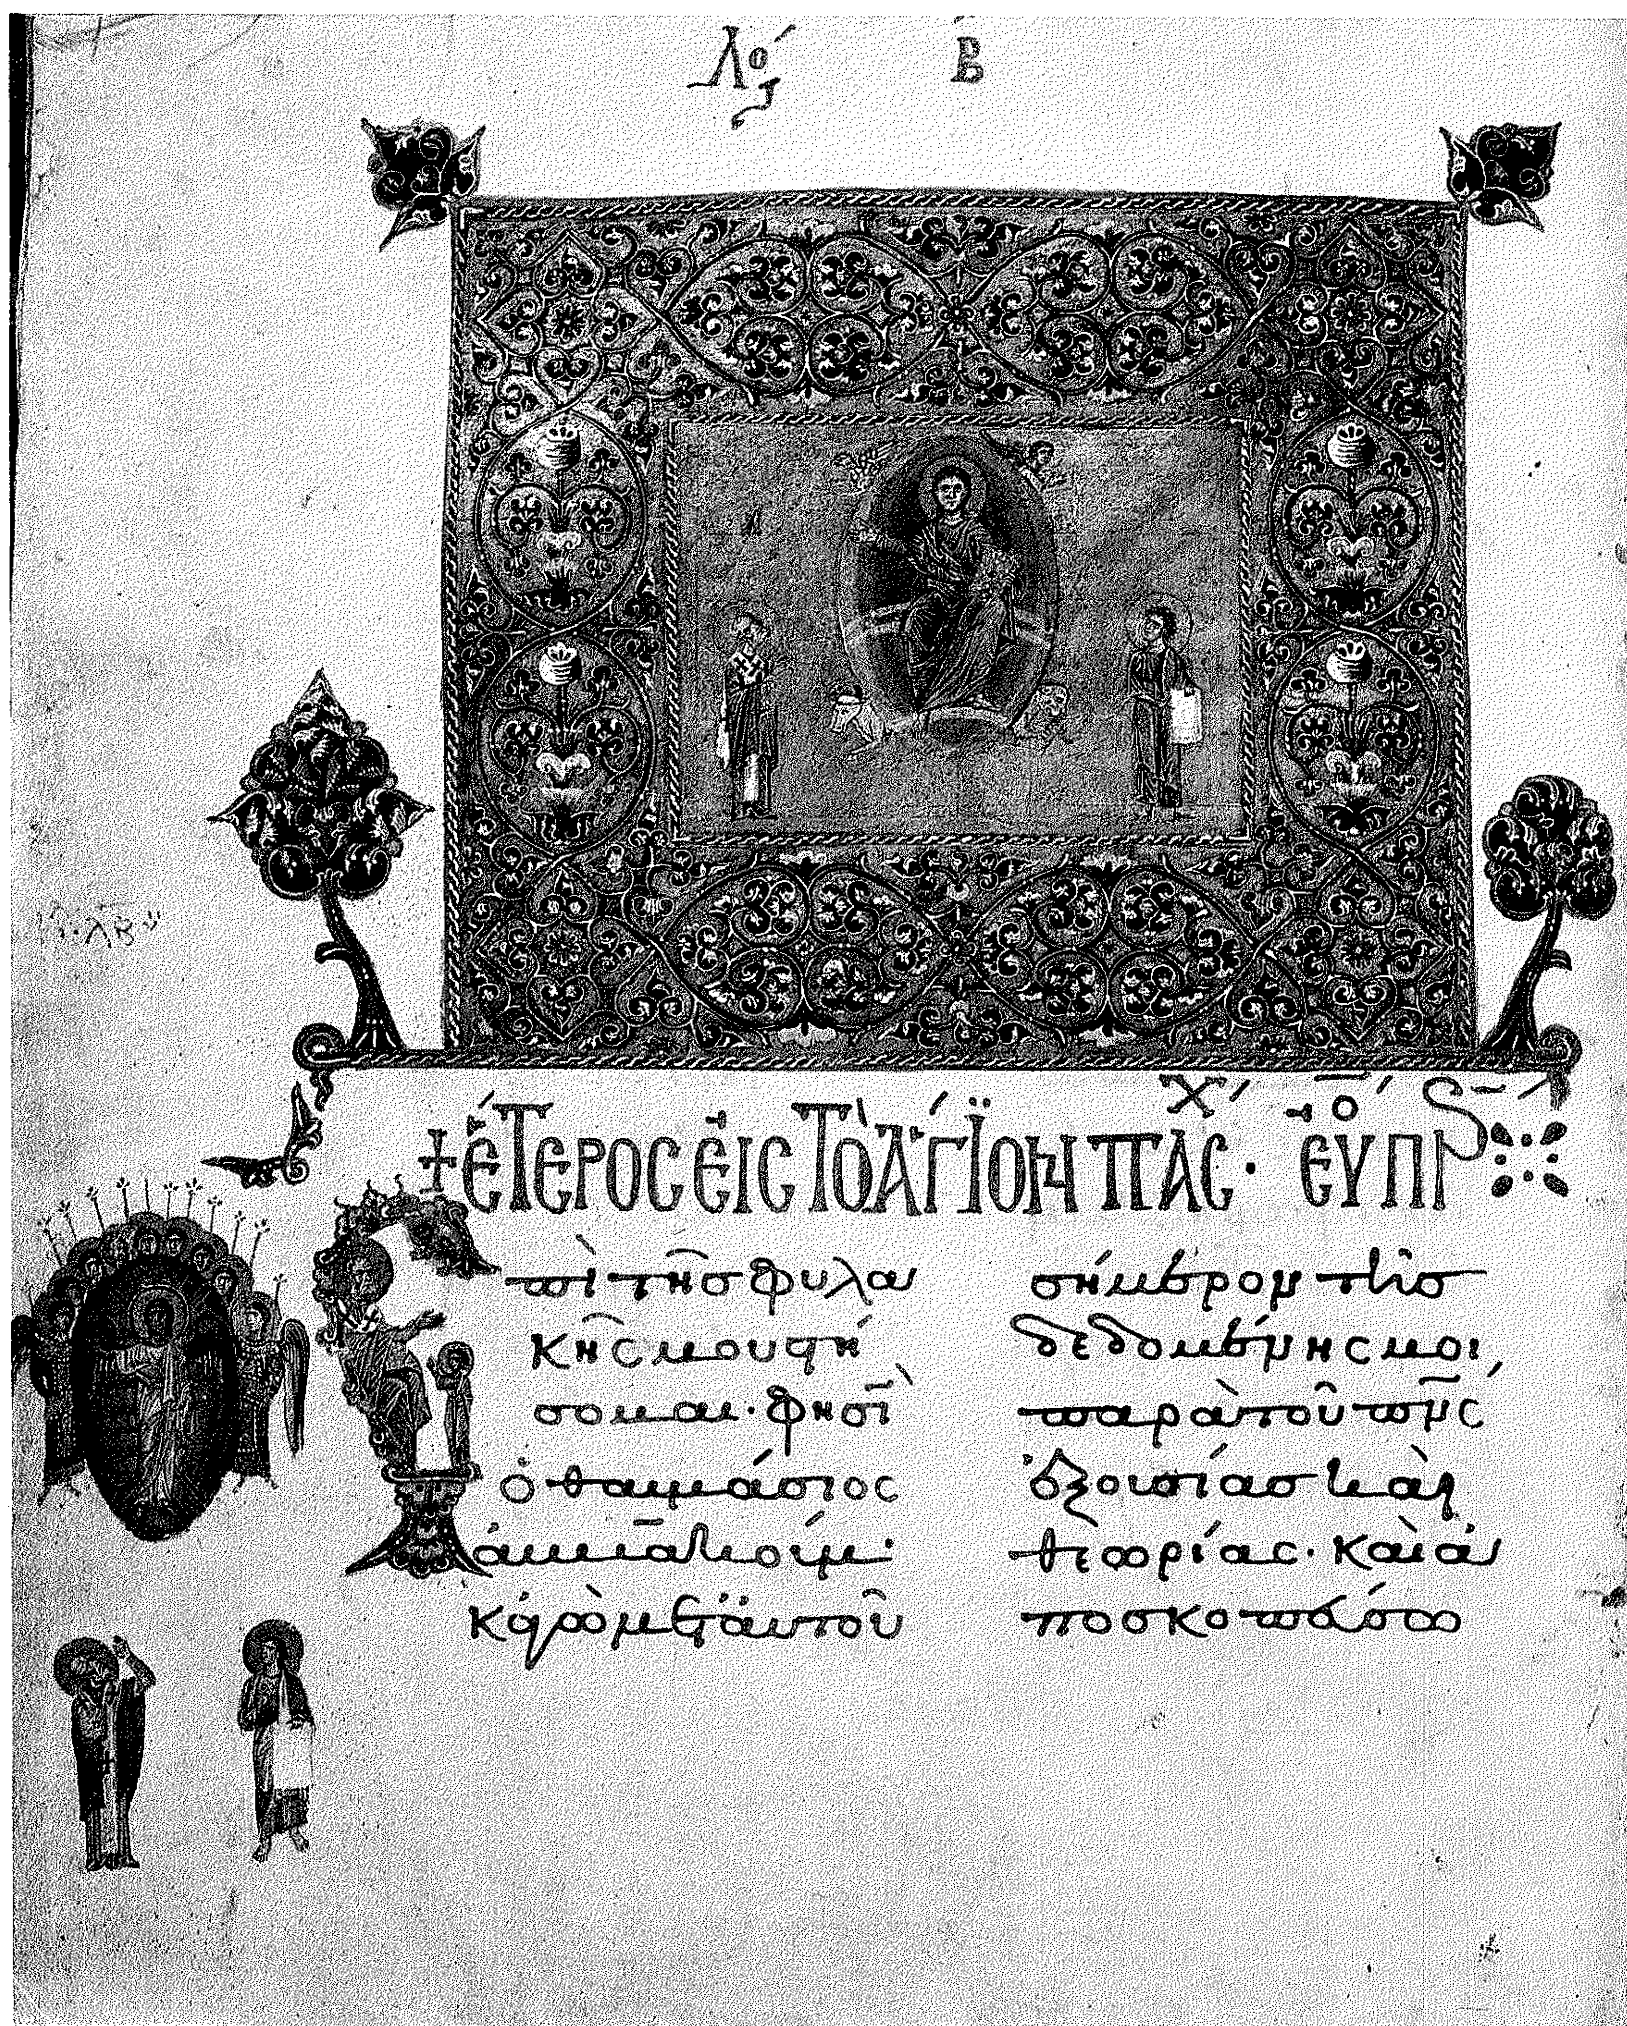 Λόγ Β
+ ἕτερος εἰς τὸ ἅγϊον πάσχ·
ἐπὶ τῆς φυλα
κῆς μου στή
σομαι· φησὶ
ὁ θαυμάσιος
ἀμβακούμ·
κἀγὼ μετ' αὐτοῦ
σήμερον τῆς
δεδομένης μοι
παρὰ τοῦ πν̅ς
ἐξουσίας καὶ
θεωρίας· καὶ ἀ
ποσκοπεύσω